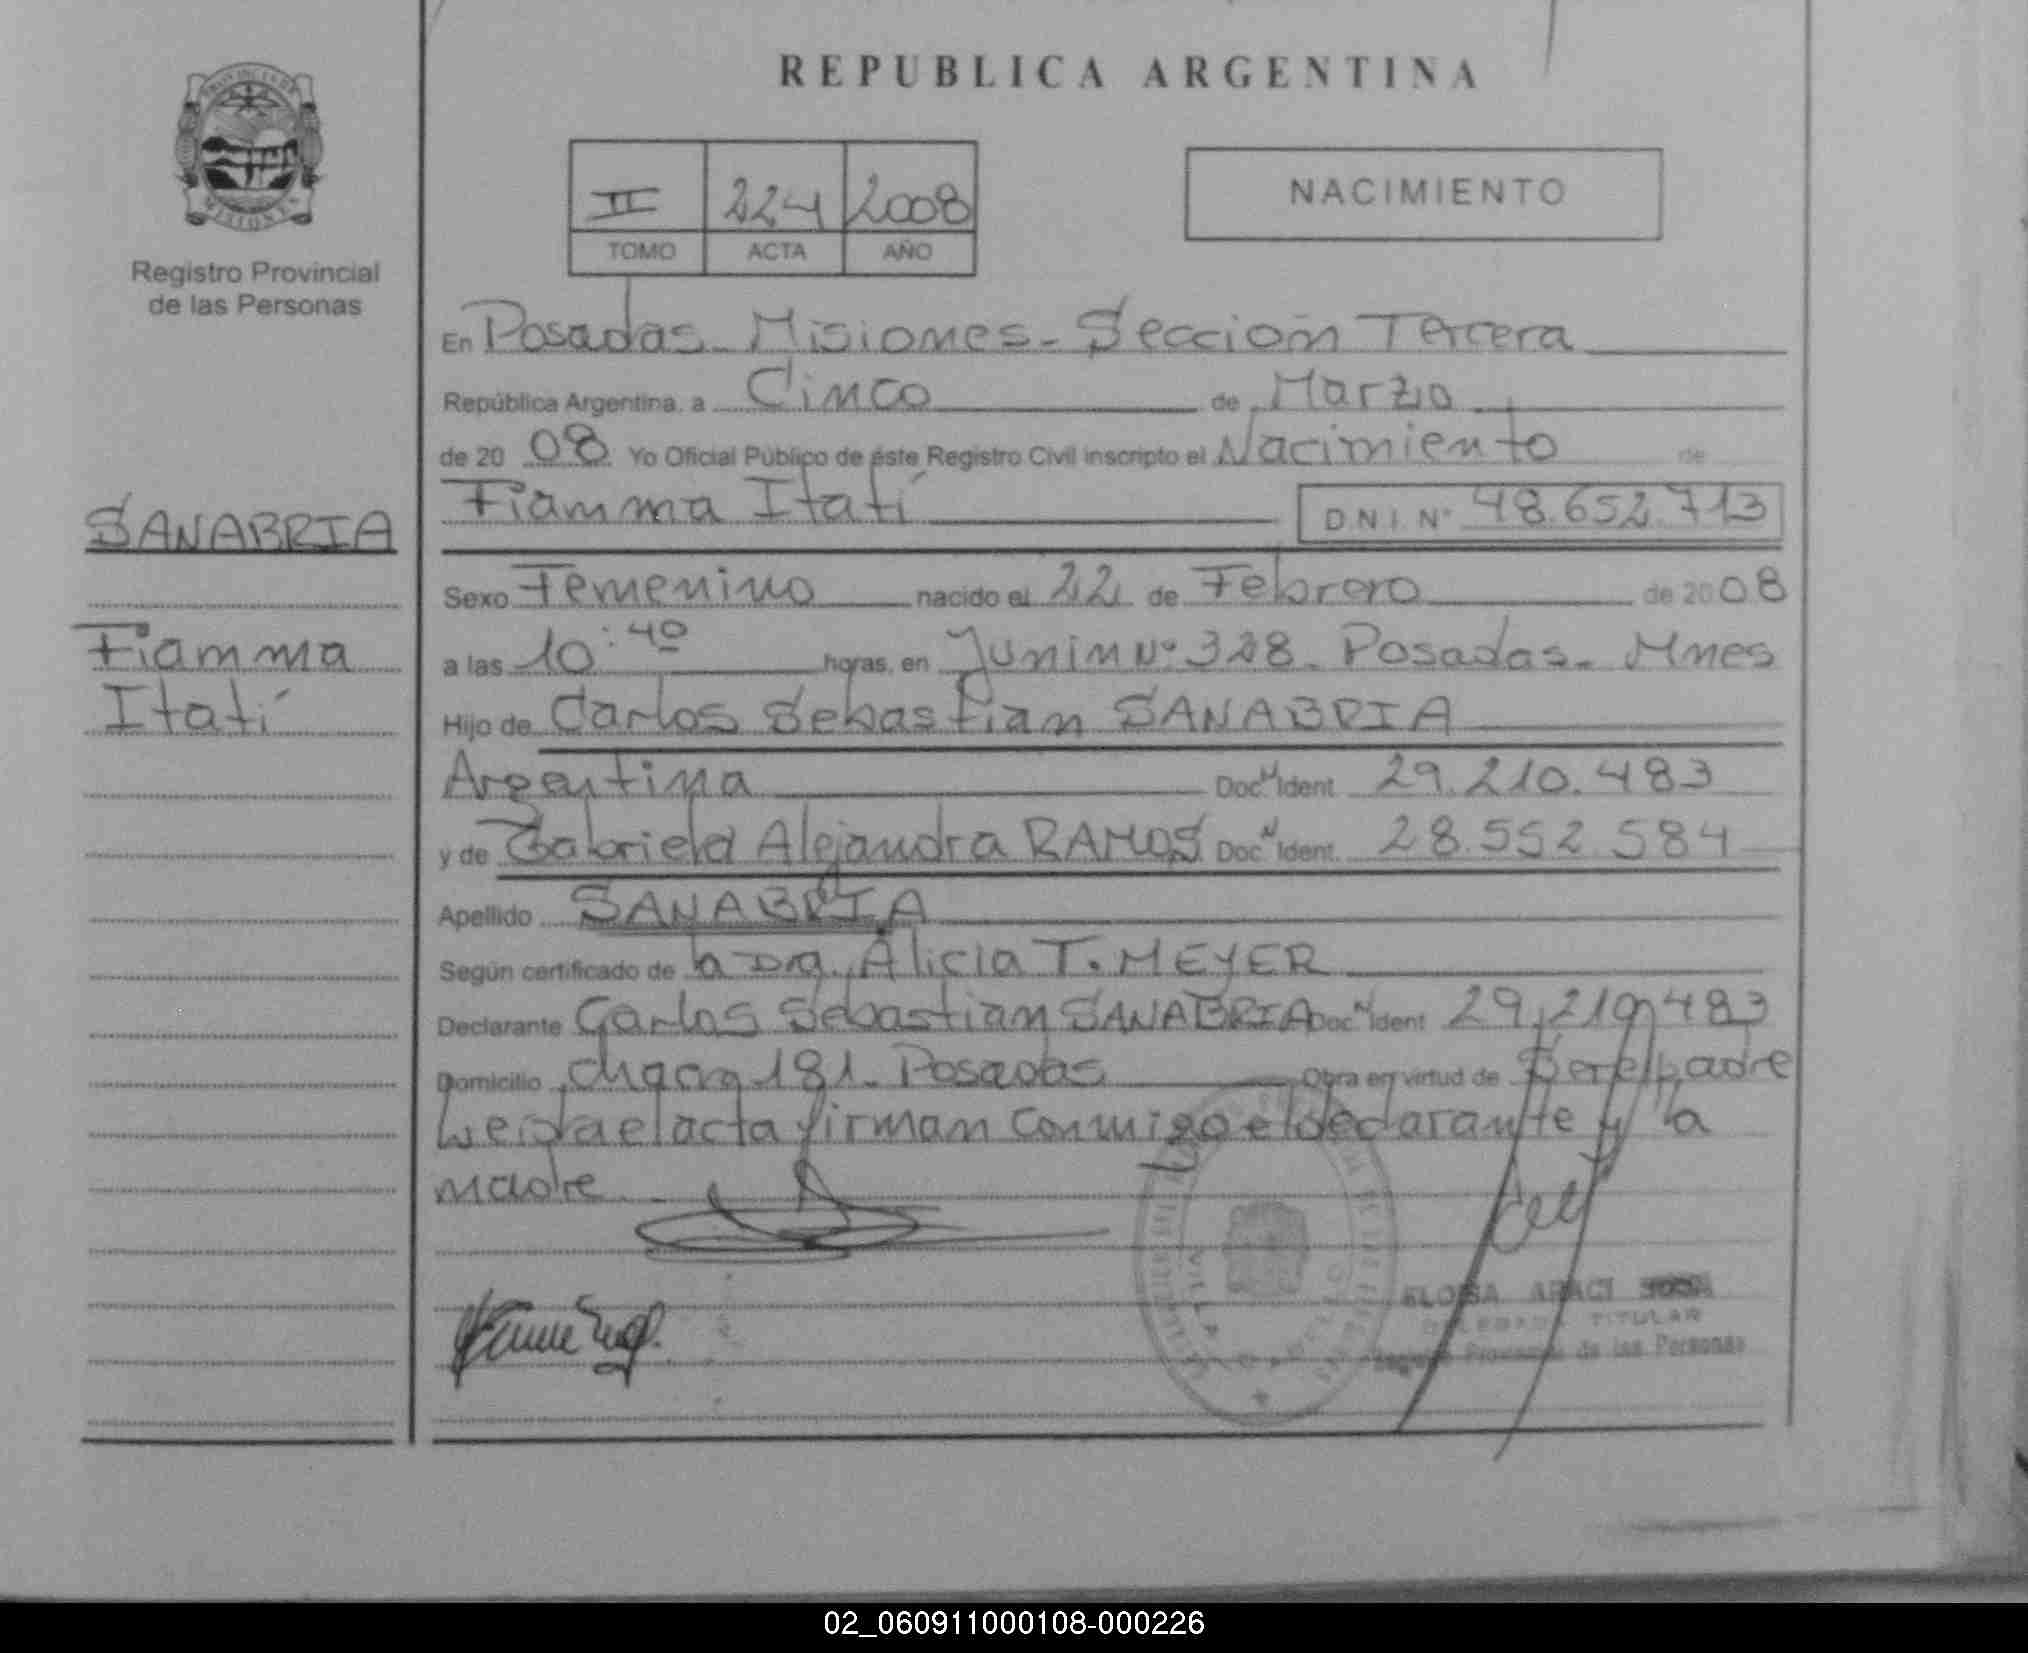 REPUBLICA ARGENTINA
PROVINCIA DE
MISIONES
Registro Provincial
de las Personas
II 224 2008
TOMO ACTA AÑO
NACIMIENTO
En Posadas - Misiones - Sección Tercera
República Argentina, a Cinco de Marzo
de 2008 Yo Oficial Público de éste Registro Civil inscripto el Nacimiento de
Fiamma Itatí D N I. Nº 48.652.713
SANABRIA
Fiamma
Itatí
Sexo Femenino nacido el 22 de Febrero de 2008
a las 10:40 horas, en Junin Nº 328 - Posadas - Mnes
Hijo de Carlos Sebastian SANABRIA
Argentina Doc. N Ident. 29.210.483
y de Gabriela Alejandra RAMOS Doc. N Ident. 28.552.584
Apellido SANABRIA
Según certificado de la Dra. Alicia T. MEYER
Declarante Carlos Sebastian SANABRIA Doc. N Ident 29.210.483
Domicilio chacra 181 - Posadas Obra en virtud de Ser el padre
Leida el acta firman conmigo el declarante y la
madre
TITULAR
Registro Provincial de las Personas
02_060911000108-000226